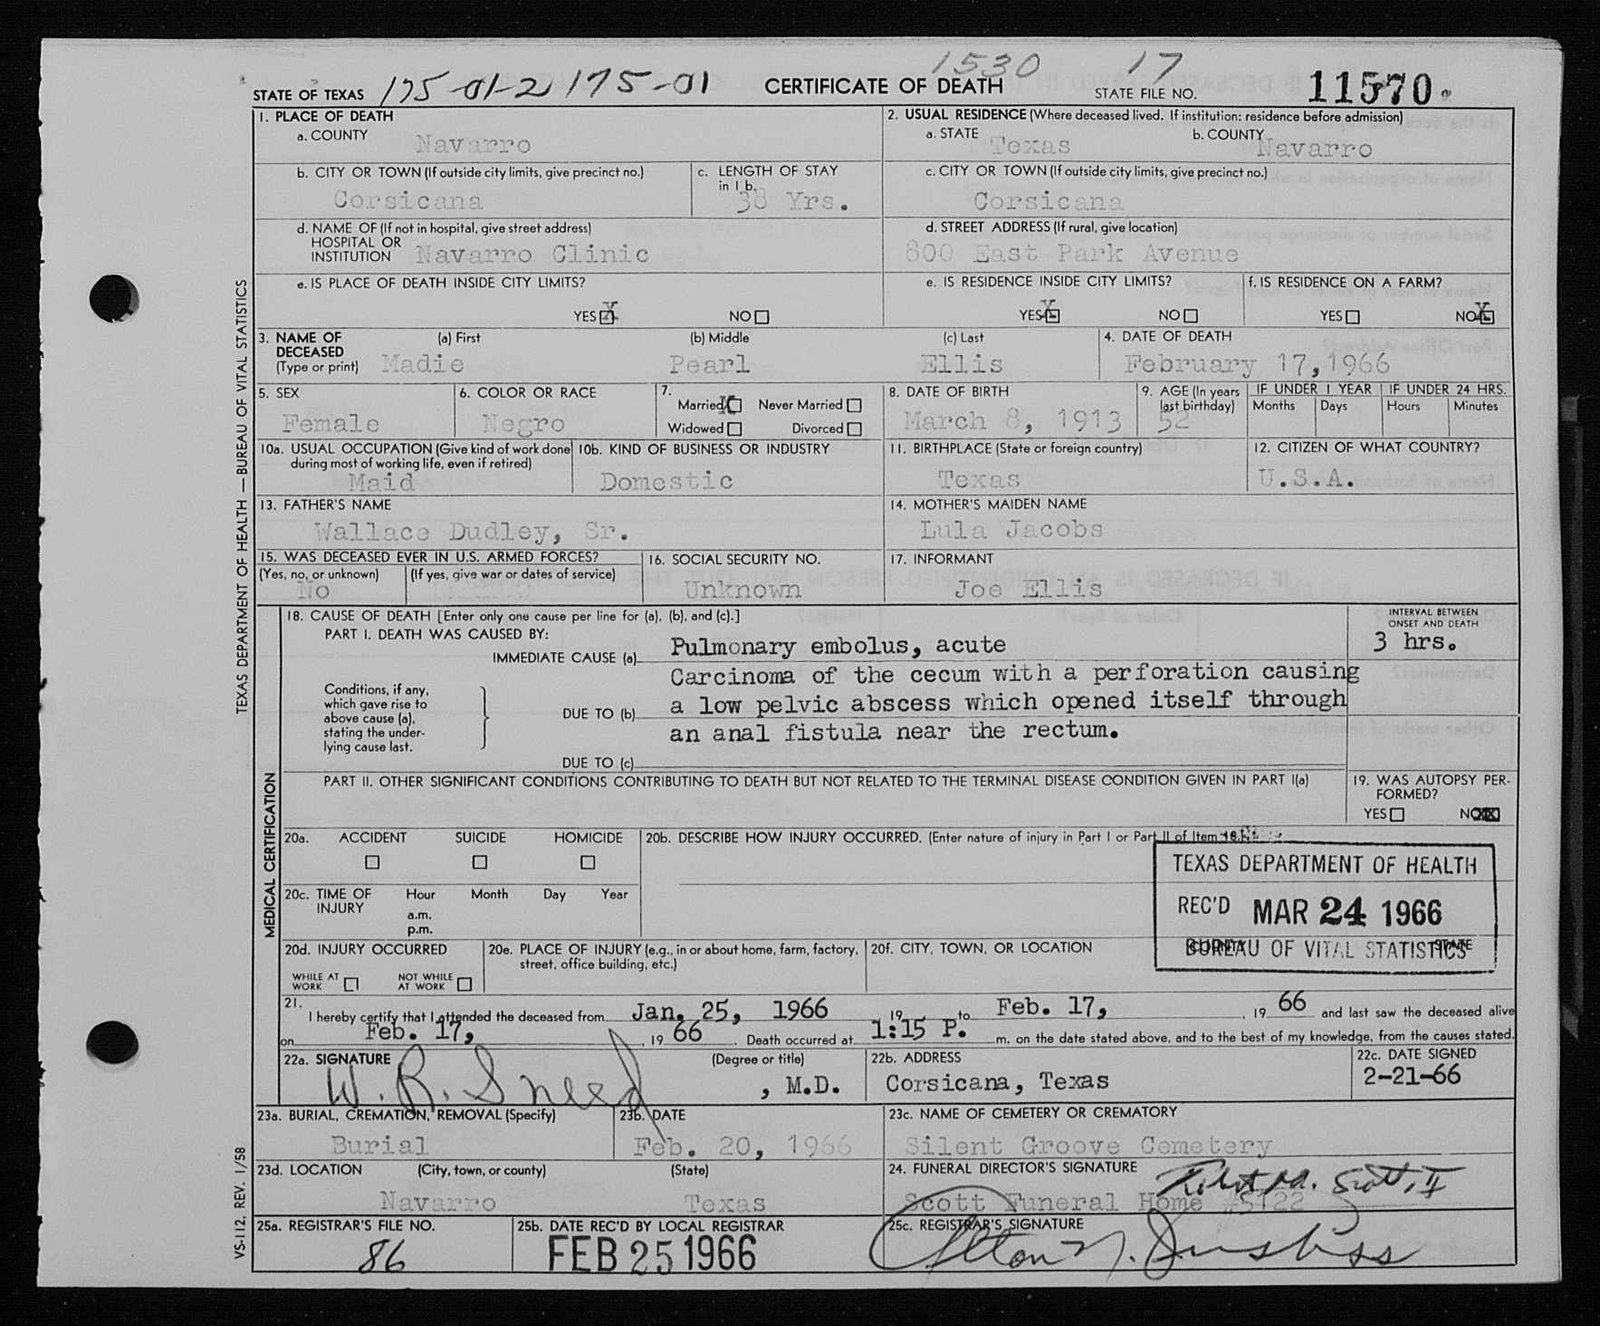 1530 17
STATE OF TEXAS 175-01-2 175-01 CERTIFICATE OF DEATH STATE FILE NO. 11570
1. PLACE OF DEATH
a. COUNTY Navarro
2. USUAL RESIDENCE (Where deceased lived. If institution: residence before admission)
a. STATE Texas b. COUNTY Navarro
b. CITY OR TOWN (If outside city limits, give precinct no.) Corsicana
c. LENGTH OF STAY in 1 b. 38 Yrs.
c. CITY OR TOWN (If outside city limits, give precinct no.) Corsicana
d. NAME OF (If not in hospital, give street address)
HOSPITAL OR
INSTITUTION Navarro Clinic
d. STREET ADDRESS (If rural, give location)
800 East Park Avenue
e. IS PLACE OF DEATH INSIDE CITY LIMITS?
YES X NO
e. IS RESIDENCE INSIDE CITY LIMITS?
YES X NO
f. IS RESIDENCE ON A FARM?
YES NO X
3. NAME OF DECEASED (Type or print)
(a) First (b) Middle (c) Last
Madie Pearl Ellis
4. DATE OF DEATH
February 17, 1966
5. SEX
Female
6. COLOR OR RACE
Negro
7.
Married X Never Married
Widowed Divorced
8. DATE OF BIRTH
March 8, 1913
9. AGE (In years last birthday)
52
IF UNDER 1 YEAR IF UNDER 24 HRS.
Months Days Hours Minutes
10a. USUAL OCCUPATION (Give kind of work done during most of working life, even if retired)
Maid
10b. KIND OF BUSINESS OR INDUSTRY
Domestic
11. BIRTHPLACE (State or foreign country)
Texas
12. CITIZEN OF WHAT COUNTRY?
U.S.A.
13. FATHER'S NAME
Wallace Dudley, Sr.
14. MOTHER'S MAIDEN NAME
Lula Jacobs
15. WAS DECEASED EVER IN U.S. ARMED FORCES?
(Yes, no, or unknown) (If yes, give war or dates of service)
No
16. SOCIAL SECURITY NO.
Unknown
17. INFORMANT
Joe Ellis
18. CAUSE OF DEATH [Enter only one cause per line for (a), (b), and (c).]
INTERVAL BETWEEN ONSET AND DEATH
PART I. DEATH WAS CAUSED BY:
IMMEDIATE CAUSE (a) Pulmonary embolus, acute 3 hrs.
Conditions, if any, which gave rise to above cause (a), stating the underlying cause last.
Carcinoma of the cecum with a perforation causing
DUE TO (b) a low pelvic abscess which opened itself through
an anal fistula near the rectum.
DUE TO (c)
PART II. OTHER SIGNIFICANT CONDITIONS CONTRIBUTING TO DEATH BUT NOT RELATED TO THE TERMINAL DISEASE CONDITION GIVEN IN PART I(a)
19. WAS AUTOPSY PERFORMED?
YES NO XX
20a. ACCIDENT SUICIDE HOMICIDE
20b. DESCRIBE HOW INJURY OCCURRED. (Enter nature of injury in Part I or Part II of Item 18.)
20c. TIME OF INJURY Hour Month Day Year
a.m.
p.m.
TEXAS DEPARTMENT OF HEALTH
REC'D MAR 24 1966
BUREAU OF VITAL STATISTICS
20d. INJURY OCCURRED
WHILE AT WORK NOT WHILE AT WORK
20e. PLACE OF INJURY (e.g., in or about home, farm, factory, street, office building, etc.)
20f. CITY, TOWN, OR LOCATION COUNTY STATE
21.
I hereby certify that I attended the deceased from Jan. 25, 1966 19 to Feb. 17, 19 66 and last saw the deceased alive
on Feb. 17, 19 66. Death occurred at 1:15 P. m. on the date stated above, and to the best of my knowledge, from the causes stated.
22a. SIGNATURE (Degree or title)
W. R. Sneed, M.D.
22b. ADDRESS
Corsicana, Texas
22c. DATE SIGNED
2-21-66
23a. BURIAL, CREMATION, REMOVAL (Specify)
Burial
23b. DATE
Feb. 20, 1966
23c. NAME OF CEMETERY OR CREMATORY
Silent Groove Cemetery
23d. LOCATION (City, town, or county) (State)
Navarro Texas
24. FUNERAL DIRECTOR'S SIGNATURE
Scott Funeral Home #5122
25a. REGISTRAR'S FILE NO.
86
25b. DATE REC'D BY LOCAL REGISTRAR
FEB 25 1966
25c. REGISTRAR'S SIGNATURE
TEXAS DEPARTMENT OF HEALTH — BUREAU OF VITAL STATISTICS
MEDICAL CERTIFICATION
VS-112, REV. 1/58